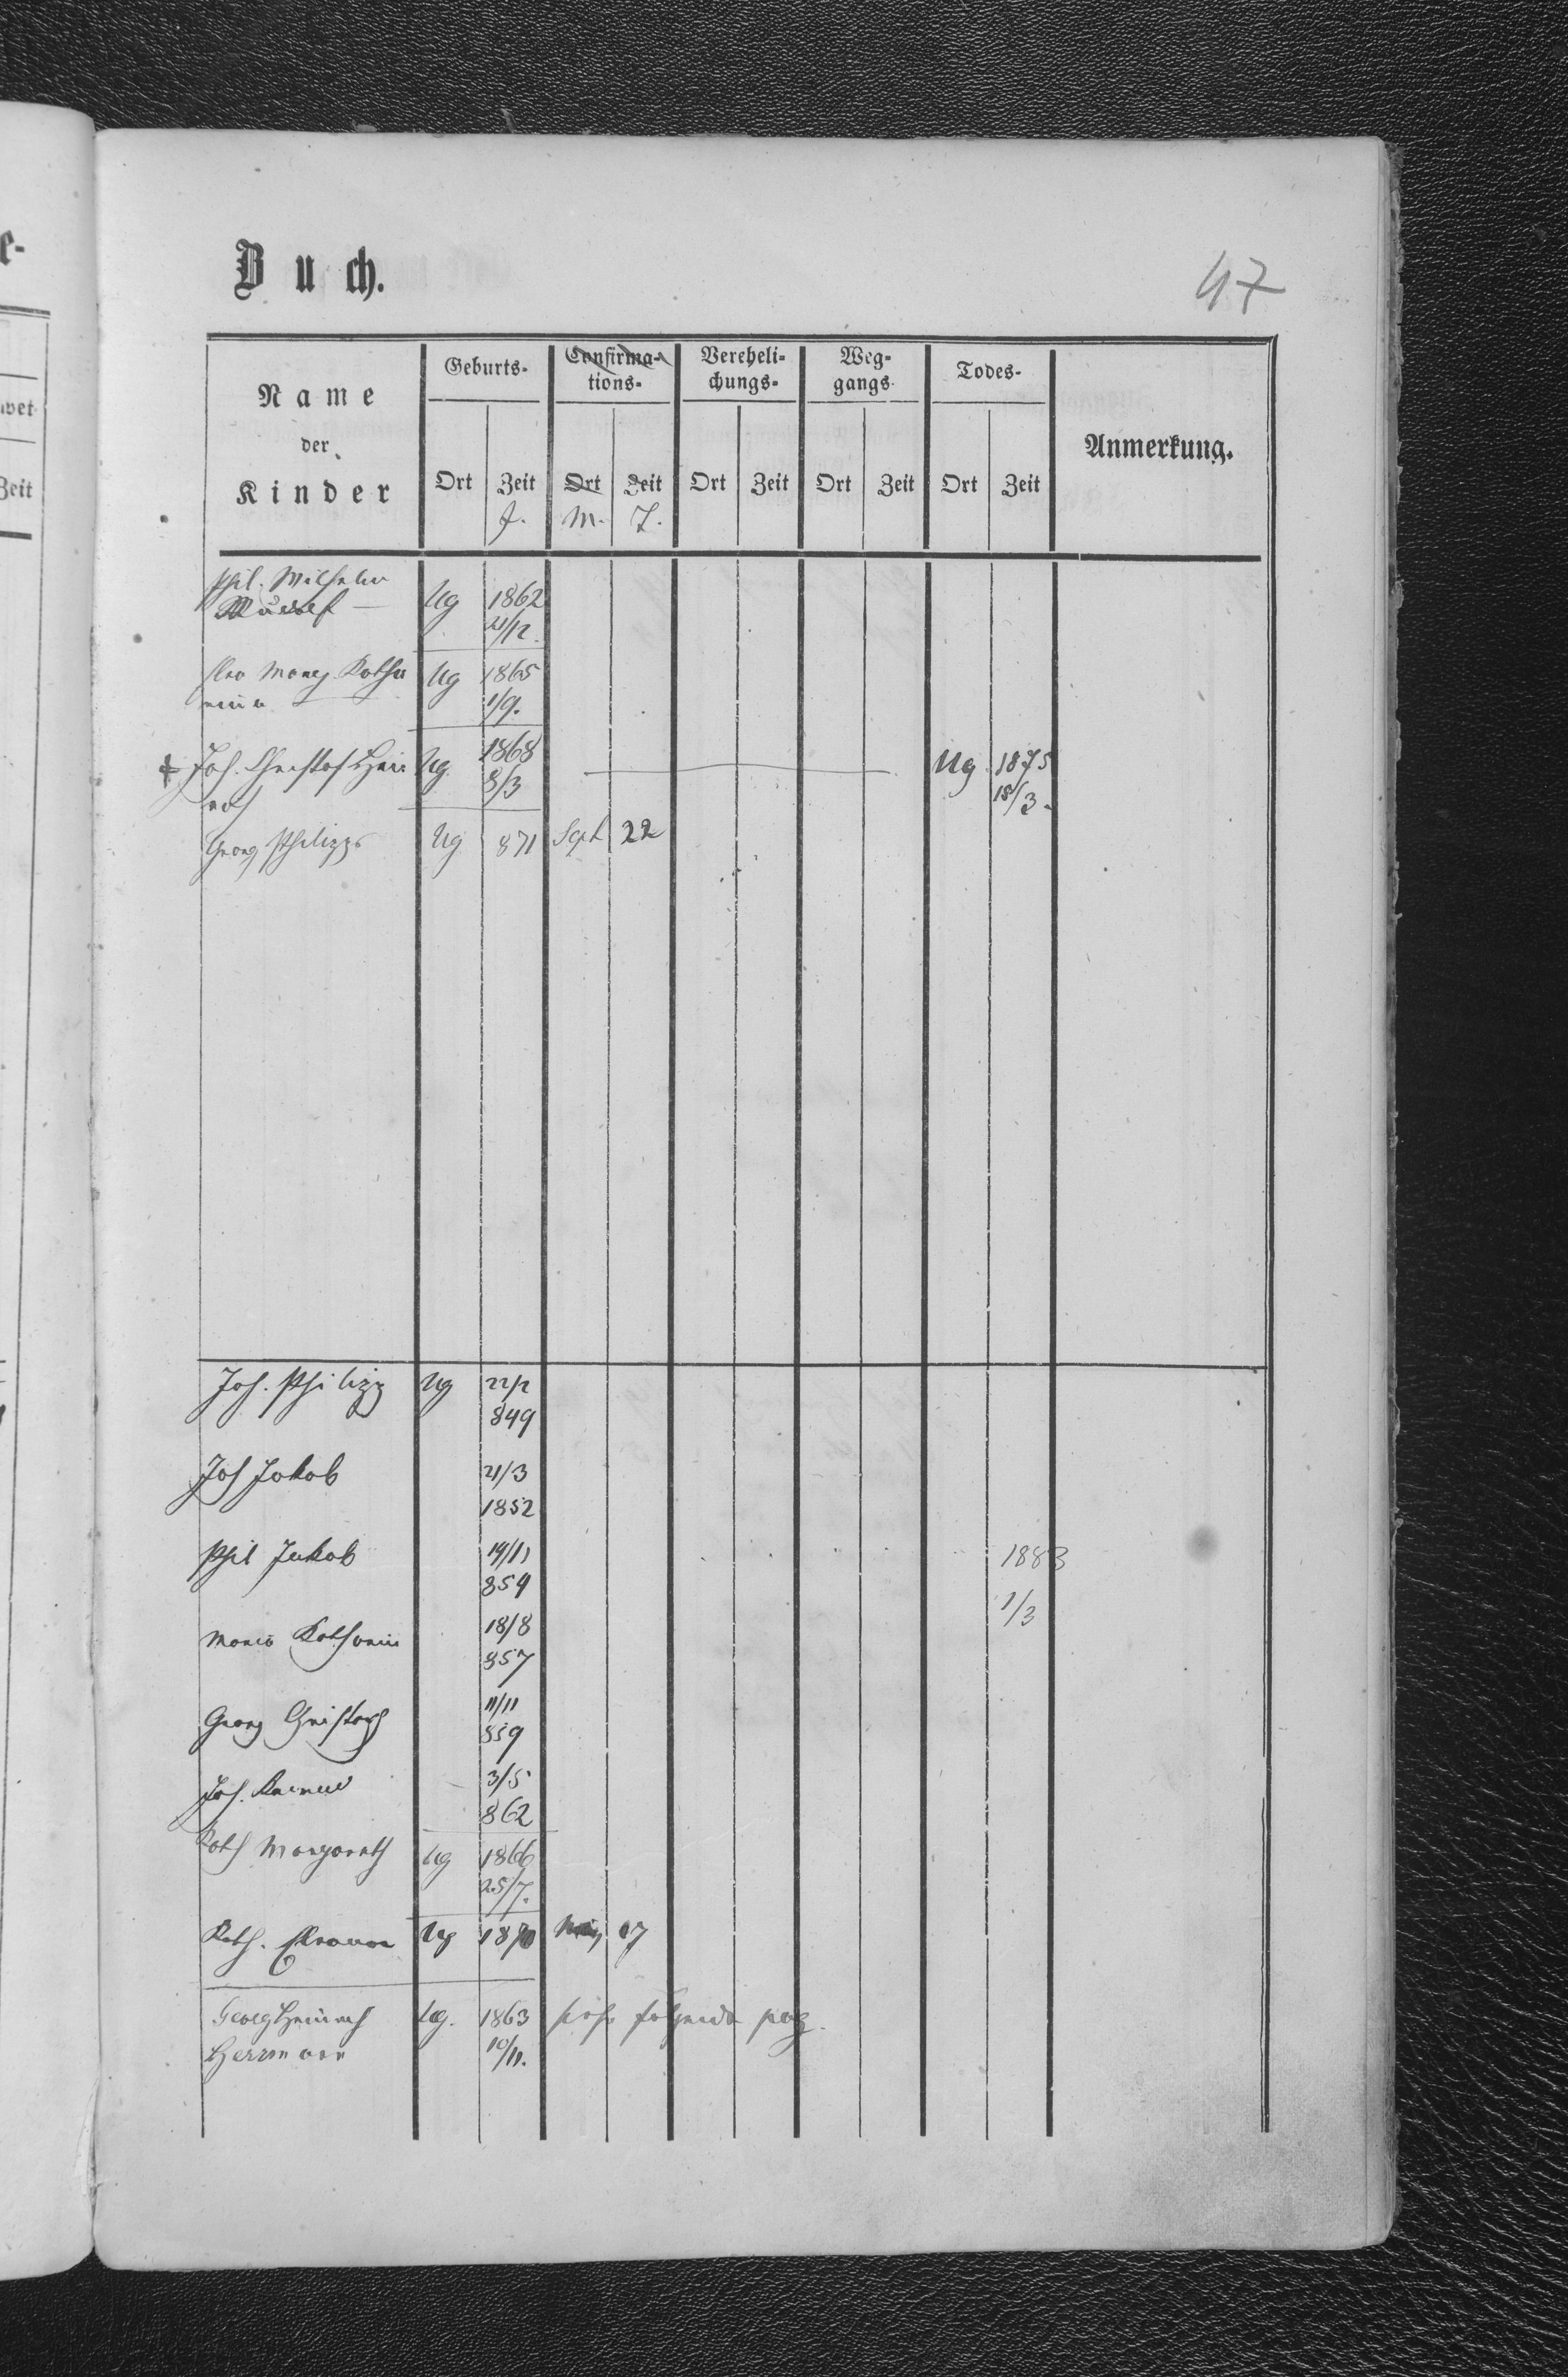 Buch.
47
Name
der
Kinder
Geburts-
Confirma-
tions-
Vereheli-
chungs-
Weg-
gangs
Todes-
Anmerkung.
Ort Zeit Ort Zeit Ort Zeit Ort Zeit Ort Zeit
J. M. T.
Phil. Wilhelm Ug 1862
21/12.
Marg. Katha Ug 1865
rina 1/9.
+ Joh. Christof Hein Ug 1868 Ug 1875
rich 8/3 15/3.
Georg Philipp Ug 871 Sept 22
Joh. Philipp Ug 22/2
849
Joh Jakob 21/3
1852
Phil Jakob 19/11 1883
854 1/3
Maria Katharin 18/8
857
Georg Christoph 11/11
859
Joh. 3/5
862
Kath Margareth Ug 1866
25/7.
Kath. Ug 1870 07
Georg Heinrich Ug. 1863 siehe folgende pag.
Herrmann 10/11.
et
Zeit